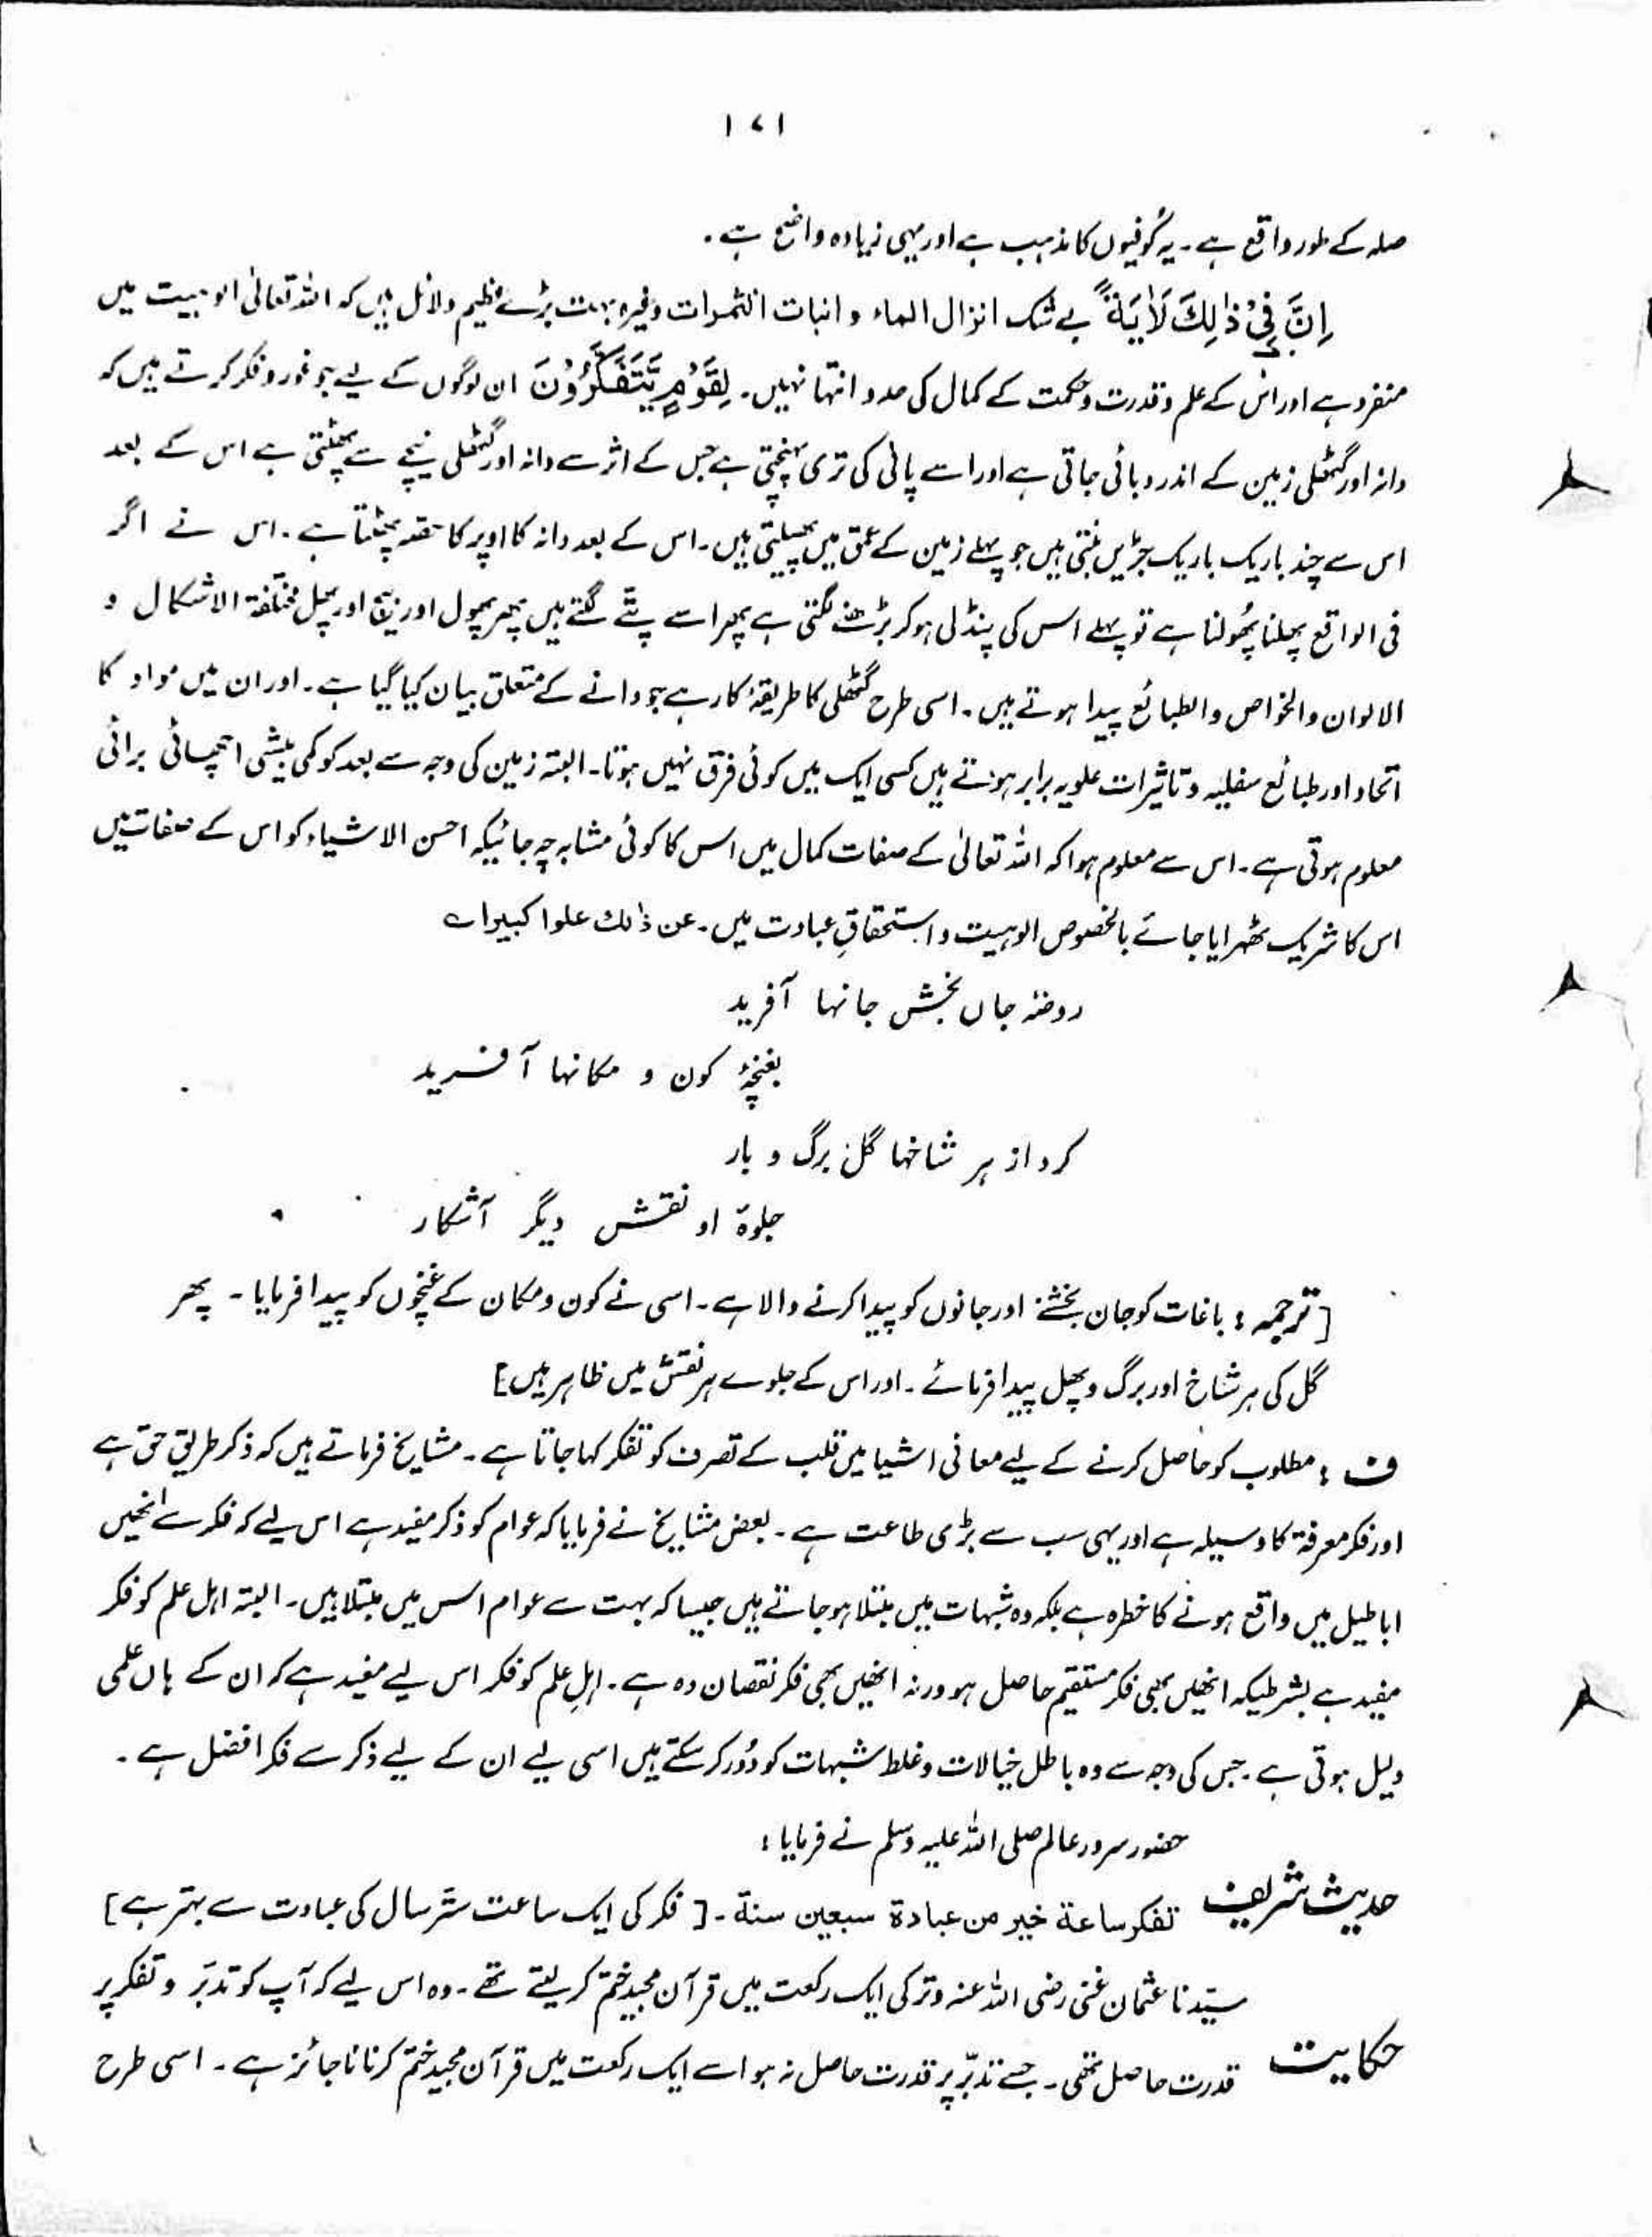 ۱۷۱
صلہ کے طور واقع ہے۔ یہ کُوفیوں کا مذہب ہے اور یہی زیادہ واضح ہے۔
اِنَّ فِیْ ذٰالِکَ لَاٰیَةً بے شک انزال الماء و انبات الثمرات وغیرہ بہت بڑے عظیم دلائل ہیں کہ اللہ تعالیٰ الوہیت میں
منفرد ہے اور اس کے علم و قدرت و حکمت کے کمال کی حد و انتہا نہیں۔ لِقَوْمٍ یَّتَفَکَّرُوْنَ ان لوگوں کے لیے جو غور و فکر کرتے ہیں کہ
دانہ اور گٹھلی زمین کے اندر دبائی جاتی ہے اور اسے پانی کی تری پہنچتی ہے جس کے اثر سے دانہ اور گٹھلی نیچے سے پھٹتی ہے اس کے بعد
اس سے چند باریک باریک جڑیں بنتی ہیں جو پہلے زمین کے عمق میں پھیلتی ہیں۔ اس کے بعد دانہ کا اوپر کا حصّہ پھٹتا ہے۔ اس نے اگر
فی الواقع پھلنا پُھولنا ہے تو پہلے اس کی پنڈلی ہو کر بڑھنے لگتی ہے پھر اسے پتّے لگتے ہیں پھر پھول اور بیج اور پھل مختلفة الاشکال و
الالوان والخواص والطبائع پیدا ہوتے ہیں۔ اسی طرح گٹھلی کا طریقۂ کار ہے جو دانے کے متعلق بیان کیا گیا ہے۔ اور ان میں مواد کا
اتحاد اور طبائع سفلیہ و تاثیرات علویہ برابر ہوتے ہیں کسی ایک میں کوئی فرق نہیں ہوتا۔ البتہ زمین کی وجہ سے بعد کو کمی بیشی اچھائی برائی
معلوم ہوتی ہے۔ اس سے معلوم ہوا کہ اللہ تعالیٰ کے صفات کمال میں اس کا کوئی مشابہ چہ جائیکہ احسن الاشیاء کو اس کے صفات میں
اس کا شریک ٹھہرایا جائے بالخصوص الوہیت و استحقاقِ عبادت میں۔ عن ذٰلک علوا کبیرا ے
روضۂ جاں بخش جانہا آفرید
بغنچۂ کون و مکانہا آفرید
کرد از ہر شاخہا گل برگ و بار
جلوۂ او نقش دیگر آشکار
[ ترجمہ : باغات کو جان بخشنے اور جانوں کو پیدا کرنے والا ہے۔ اسی نے کون و مکان کے غنچوں کو پیدا فرمایا - پھر
گل کی ہر شاخ اور برگ و پھل پیدا فرمائے۔ اور اس کے جلوے ہر نقش میں ظاہر ہیں]
ف : مطلوب کو حاصل کرنے کے لیے معانی اشیا میں قلب کے تصرف کو تفکر کہا جاتا ہے۔ مشایخ فرماتے ہیں کہ ذکر طریق حق ہے
اور فکر معرفة کا وسیلہ ہے اور یہی سب سے بڑی طاعت ہے۔ بعض مشایخ نے فرمایا کہ عوام کو ذکر مفید ہے اس لیے کہ فکر سے انھیں
اباطیل میں واقع ہونے کا خطرہ ہے بلکہ وہ شبہات میں مبتلا ہو جاتے ہیں جیسا کہ بہت سے عوام اس میں مبتلا ہیں۔ البتہ اہل علم کو فکر
مفید ہے بشرطیکہ انھیں بھی فکر مستقیم حاصل ہو ورنہ انھیں بھی فکر نقصان دہ ہے۔ اہلِ علم کو فکر اس لیے مفید ہے کہ ان کے ہاں علمی
دلیل ہوتی ہے۔ جس کی وجہ سے وہ باطل خیالات و غلط شبہات کو دُور کر سکتے ہیں اسی لیے ان کے لیے ذکر سے فکر افضل ہے۔
حضور سرور عالم صلی اللہ علیہ وسلم نے فرمایا :
حدیث شریف تفکر ساعة خیر من عبادة سبعین سنة - [ فکر کی ایک ساعت ستّر سال کی عبادت سے بہتر ہے ]
سیّدنا عثمان غنی رضی اللہ عنہ وتر کی ایک رکعت میں قرآن مجید ختم کر لیتے تھے۔ وہ اس لیے کہ آپ کو تدبّر و تفکر پر
حکایت قدرت حاصل تھی۔ جسے تدبّر پر قدرت حاصل نہ ہو اسے ایک رکعت میں قرآن مجید ختم کرنا ناجائز ہے۔ اسی طرح